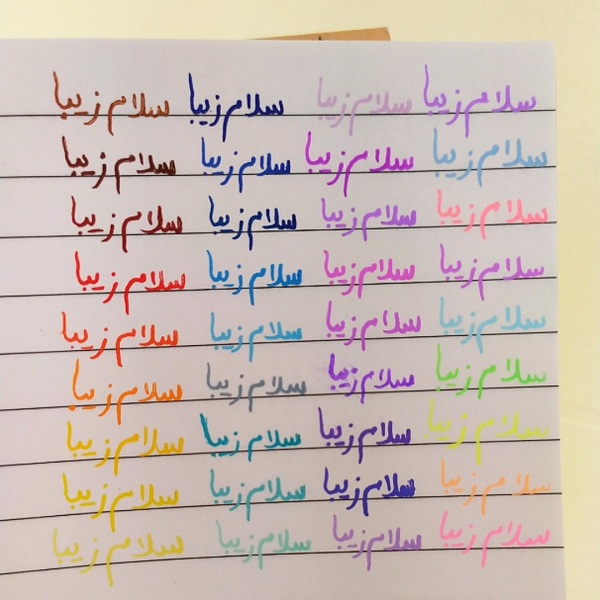 سلام زیبا سلام زیبا سلام زیبا سلام زیبا
سلام زیبا سلام زیبا سلام زیبا سلام زیبا
سلام زیبا سلام زیبا سلام زیبا سلام زیبا
سلام زیبا سلام زیبا سلام زیبا سلام زیبا
سلام زیبا سلام زیبا سلام زیبا سلام زیبا
سلام زیبا سلام زیبا سلام زیبا سلام زیبا
سلام زیبا سلام زیبا سلام زیبا سلام زیبا
سلام زیبا سلام زیبا سلام زیبا سلام زیبا
سلام زیبا سلام زیبا سلام زیبا سلام زیبا